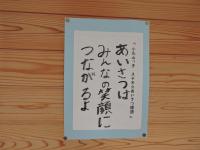 あいさつは
みんなの笑顔に
つながるよ